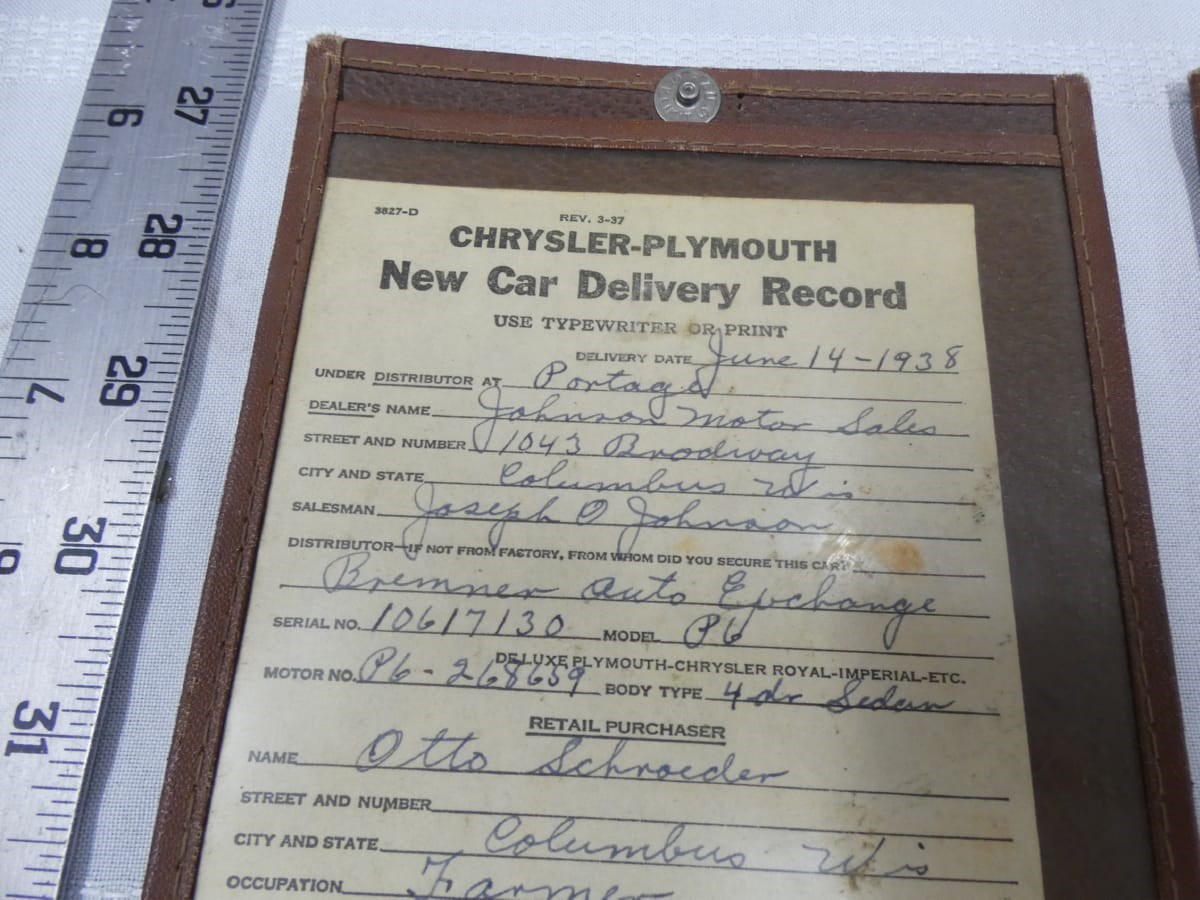 3827-D REV. 3-37
CHRYSLER-PLYMOUTH
New Car Delivery Record
USE TYPEWRITER OR PRINT
DELIVERY DATE June 14-1938
UNDER DISTRIBUTOR AT Portage
DEALER'S NAME Johnson Motor Sales
STREET AND NUMBER 1043 Brodway
CITY AND STATE Columbus Wis
SALESMAN Joseph O Johnson
DISTRIBUTOR—IF NOT FROM FACTORY, FROM WHOM DID YOU SECURE THIS CAR
Bremner Auto Exchange
SERIAL NO. 10617130 MODEL P6
DE LUXE PLYMOUTH-CHRYSLER ROYAL-IMPERIAL-ETC.
MOTOR NO. P6-268659 BODY TYPE 4 dr Sedan
RETAIL PURCHASER
NAME Otto Schroeder
STREET AND NUMBER
CITY AND STATE Columbus Wis
OCCUPATION Farmer
6 27
8 28
7 29
30
31